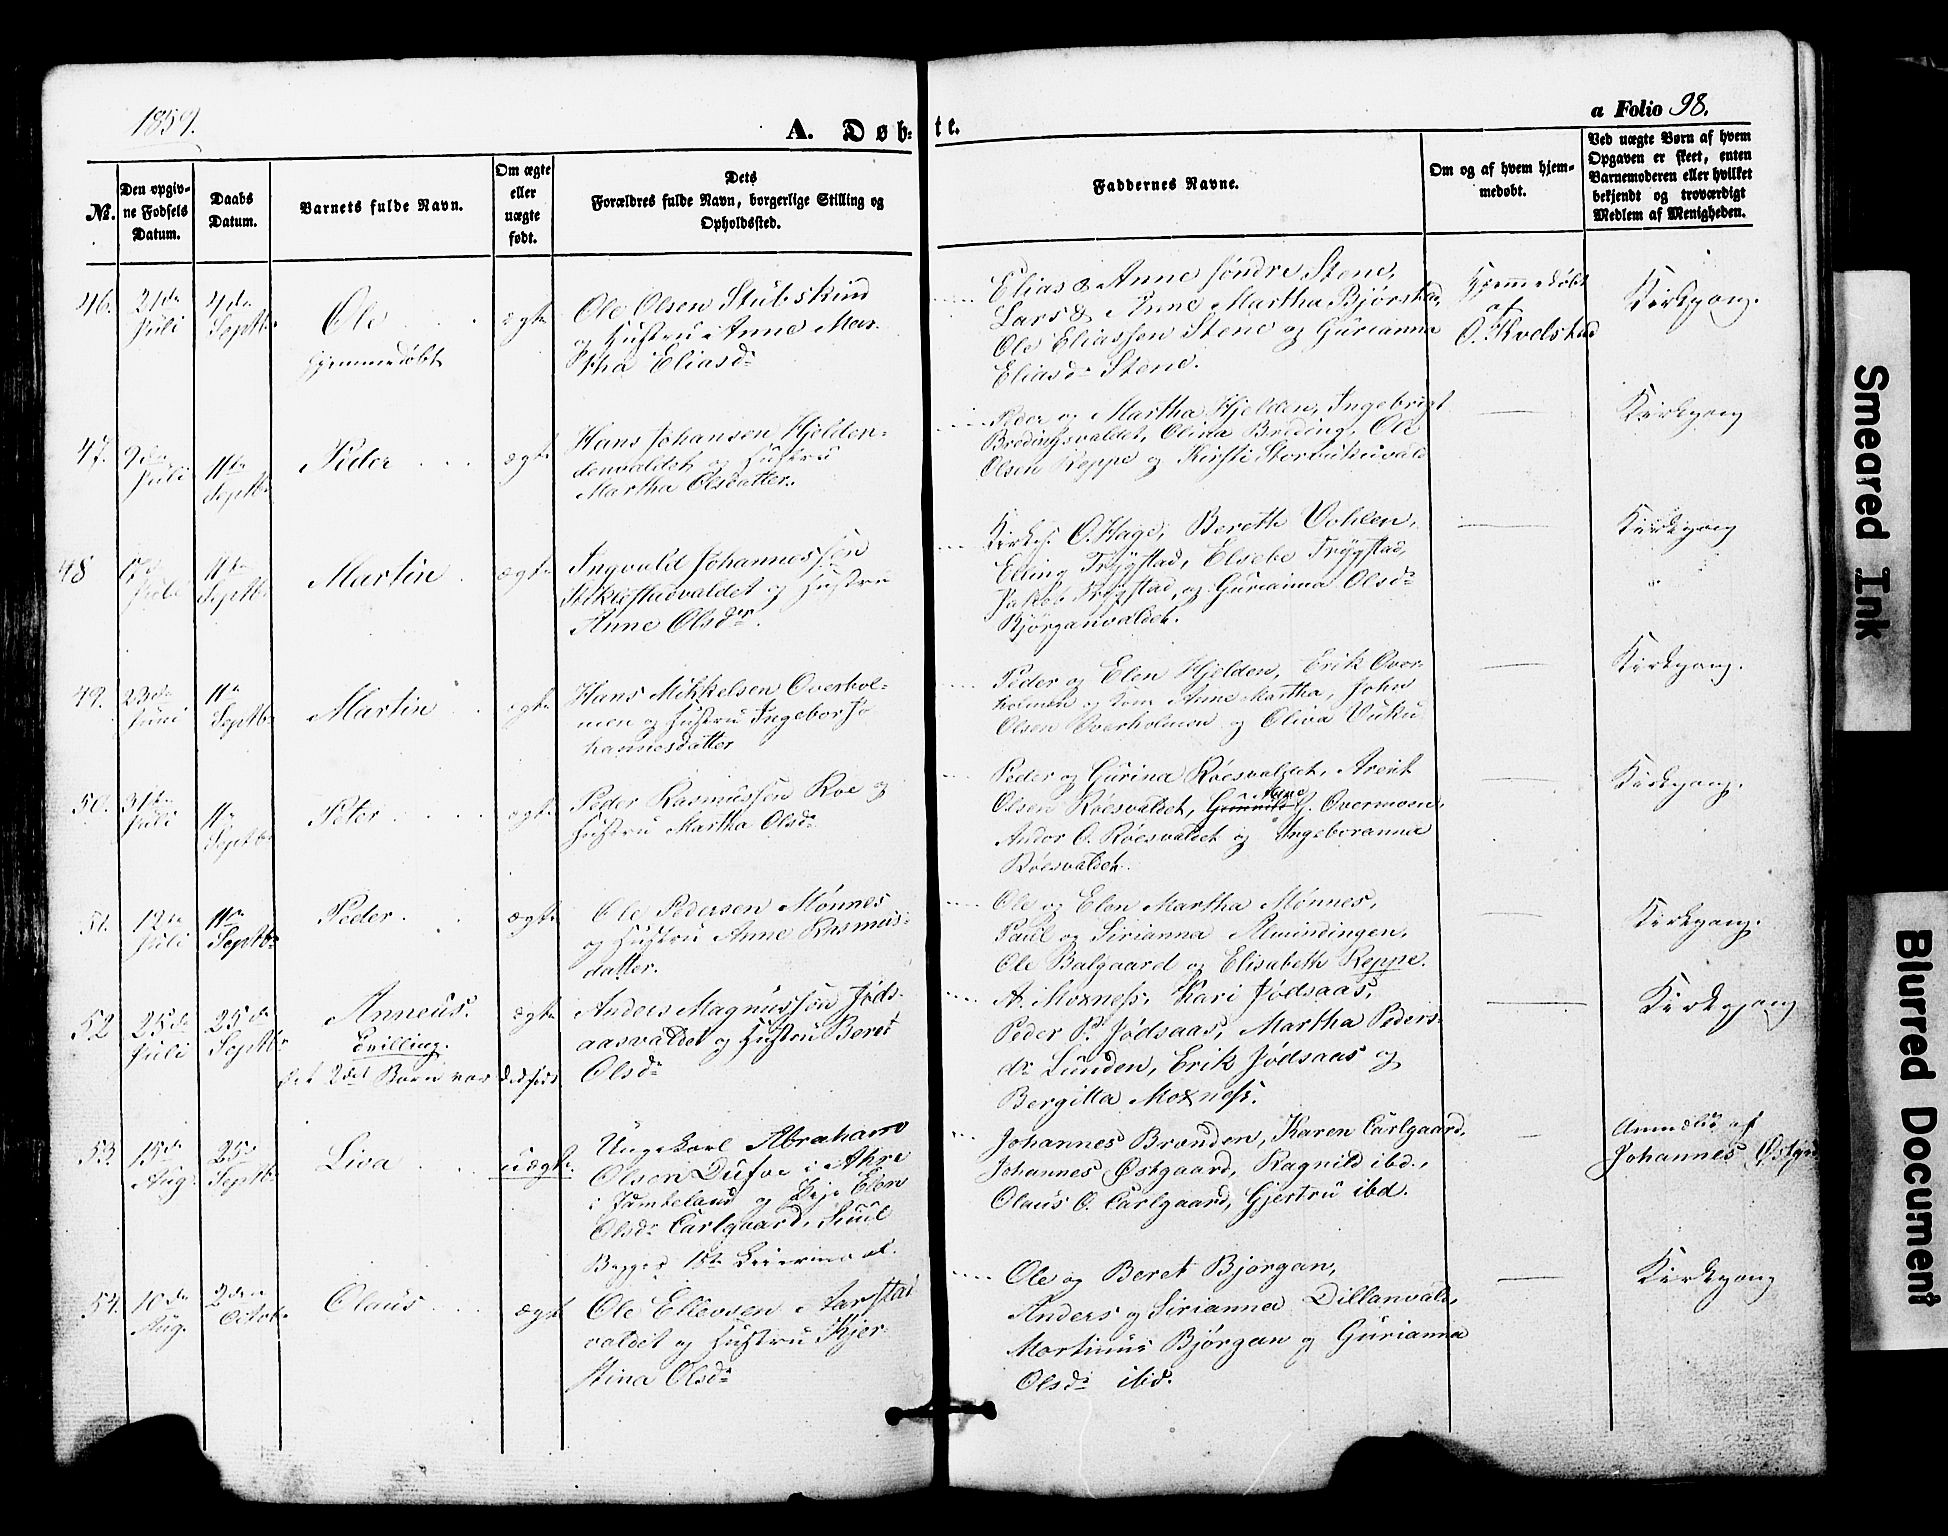 1859.
A. Døb-
te.
a Folio 98.
№.
Den opgiv-
ne Fødsels
Datum.
Daabs
Datum.
Barnets fulde Navn.
Om ægte
eller
uægte
født.
Dets
Forældres fulde Navn, borgerlige Stilling og
Opholdssted.
Faddernes Navne.
Om og af hvem hjem-
medøbt.
Ved uægte Børn af hvem
Opgaven er skeet, enten
Barnemoderen eller hvilket
bekjendt og troværdigt
Medlem af Menigheden.
46.
21de
Juli
4de
Septb.
Ole
hjemmedøbt
ægte
Ole Olsen Stubskind
og Hustru Anne Mar-
tha Eliasdr
Elias & Anne søndre Stene,
Lars & Anne Martha Bjørstad,
Ole Eliassen Stene og Gurianna
Eliasdr Stene.
Hjemmedøbt
af
O. Kvelstad
Kirkgang.
47.
Juli
11te
Septb.
Peder
ægte
Hans Johansen Hjelden-
denvaldet og Hustru
Martha Olsdatter.
Peder og Martha Hjelden, Ingebrigt
Bredingsvaldet, Olina Breding, Ole
Olsen Reppe og Kirsti
Kirkgang
48
Juli
11te
Septb.
Martin
ægte
Ingvald Johannessen
Stiklestadvaldet og Hustru
Anne Olsdr.
Kirkes. O. Hage, Bereth Vohlen,
Elling Trygstad, Elsebe Trygstad,
Jakob Trygstad, og Gurianna Olsdr
Bjørganvaldet.
Kirkgang
"
49.
23de
Juni
11te
Septb.
Martin
ægte
Hans Mikkelsen Overhol-
men og Hustru Ingebor Jo
hannesdatter
Peder og Elen Hjelden, Erik Over-
holmen og Kone Anne Martha, John
Olsen Overholmen og Oliva Vuku
Kirkgang.
50.
31te
Juli
11te
Septb.
Peter
ægte
Peder Rasmussen Roe og
Hustru Martha Olsdr
Peder og Gurina Röesvaldet, Arent
Olsen Röesvaldet, Anne J. Overmoen,
Andor O. Röesvaldet og Ingeboranna
Röesvaldet.
Kirkgang.
51.
12te
Juli
11te
Septb.
Peder
ægte
Ole Pedersen Mönnes
og Hustru Anne Rasmus-
datter.
Ole og Elen Martha Mönnes,
Paul og Sirianna Almindingen,
Ole Balgaard og Elisabeth Reppe.
Kirkgang.
52
25de
Juli
25de
Septb.
Anneus.
Tvilling.
det 2det Barn var
dødfød
ægte
Anders Magnussen Jøds-
aasvaldet og Hustru Beret
Olsdr
A. Moxness, Kari Jødsaas,
Peder P. Jødsaas, Martha Peders-
dr Lunden, Erik Jødsaas og
Bergitta Moxness.
Kirkgang
53.
15de
Aug.
25de
Septb.
Liva
uægte.
Ungekarl Abraham
Olsen Dufve i Åhre
i Jämteland og Pige Elen
Olsdr Carlgaard, Suul
Begges 1ste Leiermaal.
Johannes Branden, Karen Carlgaard,
Johannes Østgaard, Ragnild ibd.,
Olaus O. Carlgaard, Gjertru ibd.
Anmeldt af
Johannes
54.
10de
Aug.
2den
Octob.
Olaus
ægte
Ole Ellevsen Aarstad
valdet og Hustru Kjer-
stina Olsdr
Ole og Beret Bjørgan,
Anders og Sirianna Dillanvald,
Martinus Bjørgan og Gurianna
Olsdr ibd.
Kirkgang
Smeared Ink
Blurred Document